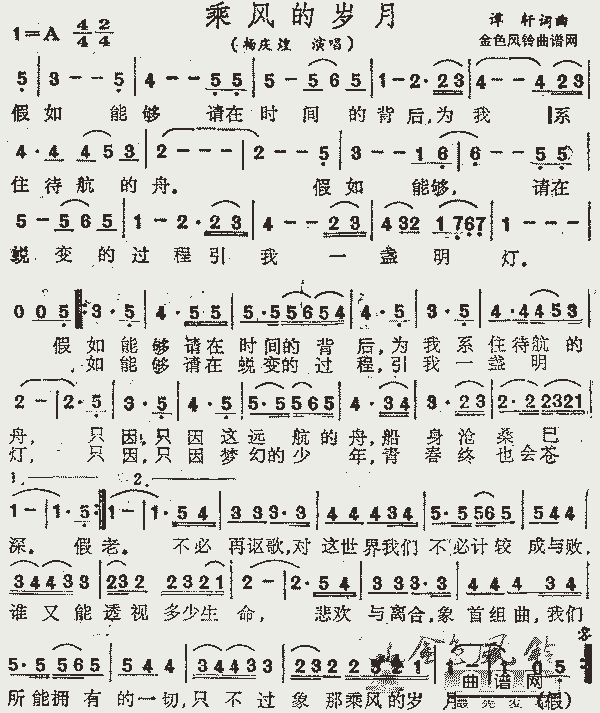 乘风的岁月
1=A 4/4 2/4
(杨庆煌 演唱)
谭 轩 词曲
金色风铃曲谱网
5 | 3 - - 5 | 4 - - 5 5 | 5 - 5 6 5 | 1 - 2 · 2 3 | 4 - - 4 2 3 |
假如 能够 请在时间的背后,为我 系
4 · 4 4 5 3 | 2 - - - | 2 - - 5 | 3 - - 1 6 | 6 - - 5 5 |
住待航的舟。 假如 能够, 请在
5 - 5 6 5 | 1 - 2 · 2 3 | 4 - - 2 3 | 4 3 2 1 7 6 7 | 1 - - - |
蜕变的过程引我一盏明灯。
0 0 5 ‖: 3 · 5 | 4 · 5 5 | 5 · 5 5 6 5 4 | 4 · 5 | 3 · 5 | 4 · 4 4 5 3 |
假如能够请在时间的背后,为我系住待航的
如能够请在蜕变的过程,引我一盏明
2 - | 2 · 5 | 3 · 5 | 4 · 5 | 5 · 5 5 6 5 | 4 · 3 4 | 3 · 2 3 | 2 · 2 2 3 2 1 |
舟, 只因,只因这远航的舟,船身沧桑已
灯, 只因,只因梦幻的少年,青春终也会苍
1. 2.
1 - | 1 · 5 :‖ 1 - | 1 · 5 4 | 3 3 3 · 3 | 4 4 4 3 4 | 5 · 5 5 6 5 | 5 4 4 |
深。 假老。 不必再讴歌,对这世界我们不必计较成与败,
3 4 4 3 3 | 2 3 2 2 3 2 1 | 2 - | 2 · 5 4 | 3 3 3 · 3 | 4 4 4 3 4 |
谁又能透视多少生命, 悲欢与离合,象首组曲,我们
5 · 5 5 6 5 | 5 4 4 | 3 4 4 3 3 | 2 3 2 2 3 2 1 | 1 - | 1 0 5
所能拥有的一切,只不过象那乘风的岁月 (假)
金色风铃
曲谱网